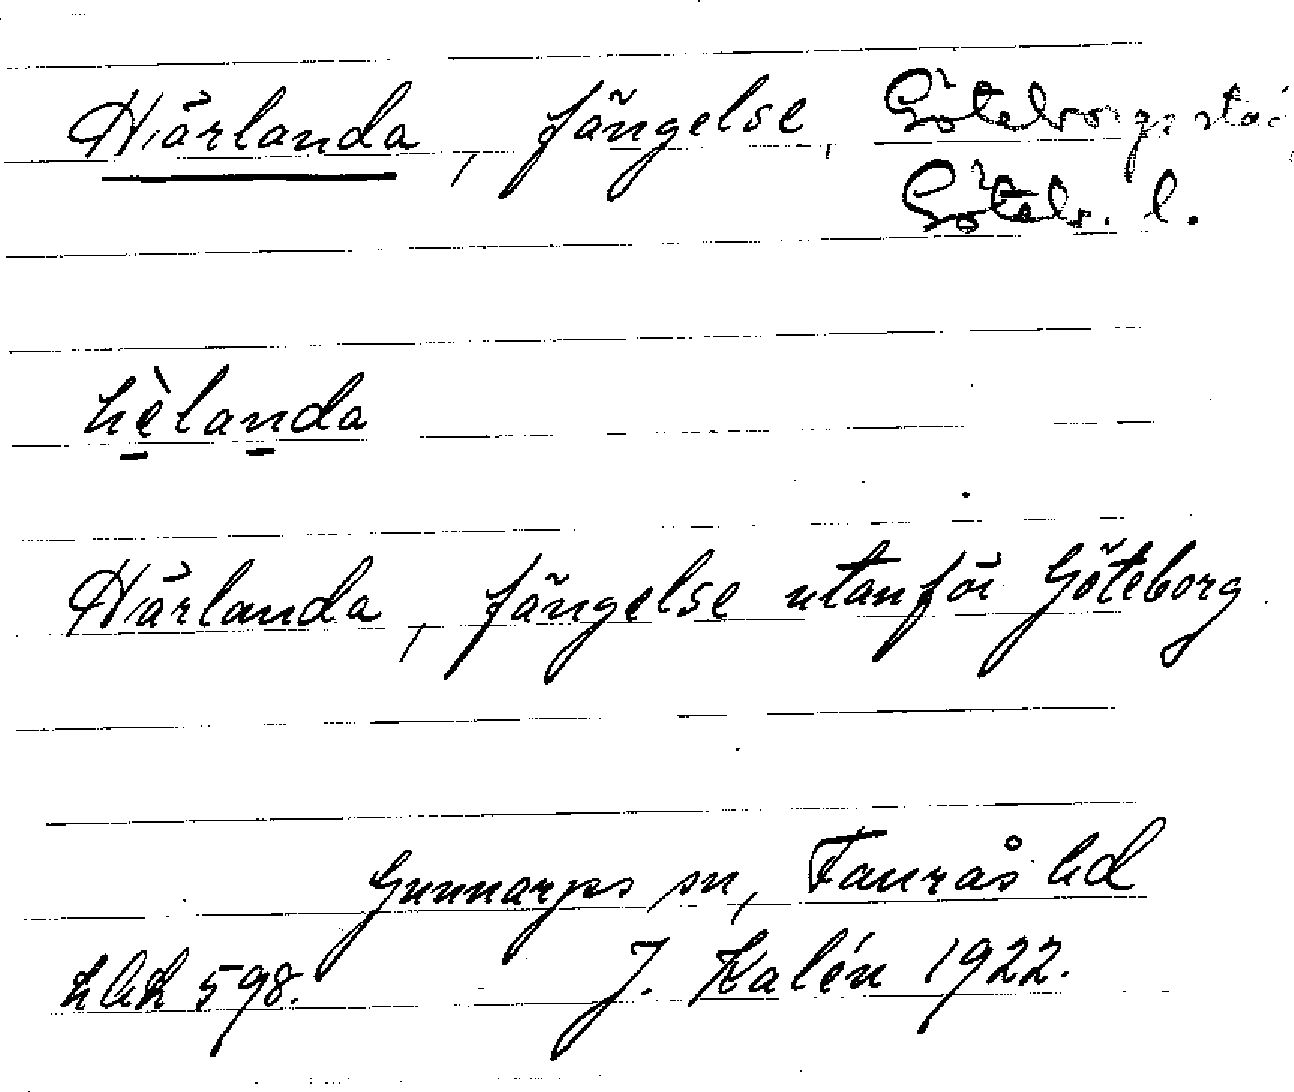 Härlanda, fängelse, Göteborgs sta
Göteb. l.
hèlanda
Härlanda, fängelse utanför Göteborg
Gunnarps sn, Faurås hd
hbk 598. J. Kalén 1922.